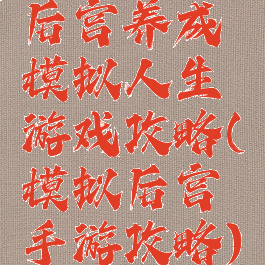 后宫养成
模拟人生
游戏攻略(
模拟后宫
手游攻略)